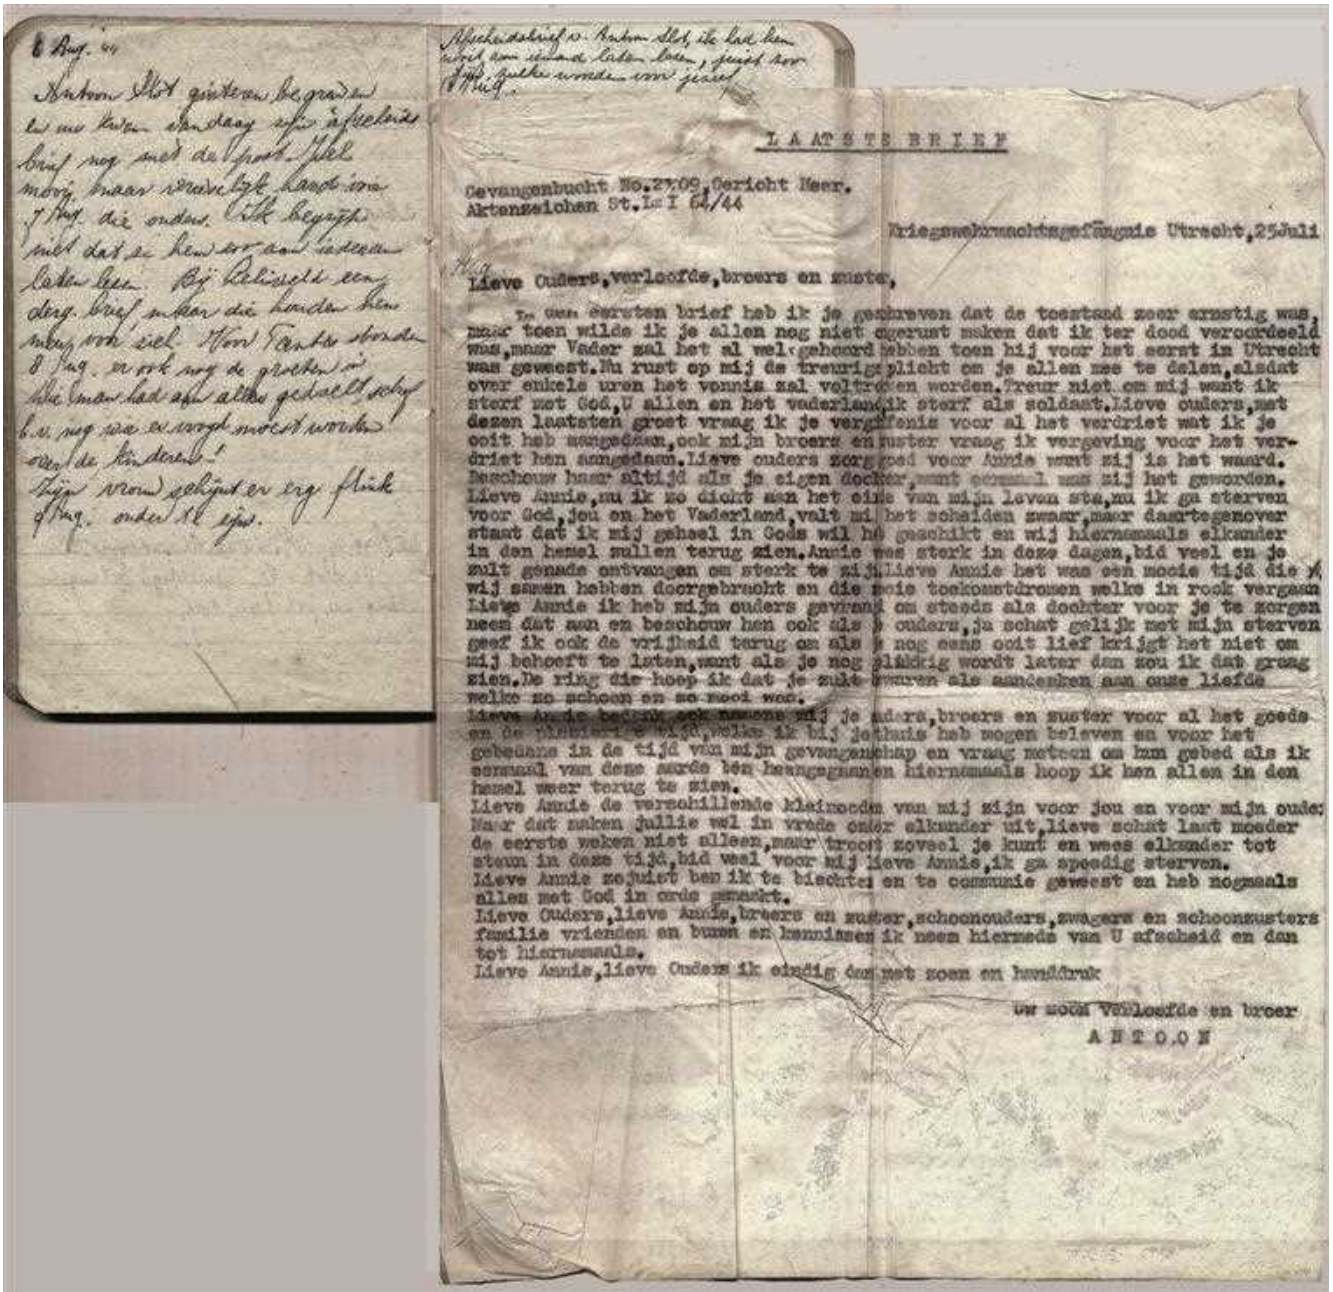 6 Aug. 44
Antoon Slot gisteren begraven
en nu kwam vandaag zijn afscheids
brief nog met de post. Heel
mooi, maar vreeselijk hard voor
7 Aug. die ouders. Ik begrijp
niet dat ze hem er aan iedereen
laten lezen. Bij een
derg. brief maar die houden hem
mooi voor zich. Voor Tantes stonden
8 Aug. er ook nog de groeten in
Die man had aan alles gedacht, schrijf
b.v. nog wie er voogd moest worden
over de kinderen!
Zijn vrouw schijnt er erg flink
9 Aug. onder te zijn.
Afscheidsbrief v. Antoon Slot, ik had hem
nooit aan iemand laten lezen, juist zoo
zulke woorden voor jezelf
Aug.
LAATSTE BRIEF
Gevangenbucht No.2709,Gericht Heer.
Aktenzeichen St.L.I 64/44
Kriegswehrmachtsgefängnis Utrecht,25Juli
Lieve Ouders,verloofde,broers en zuster,
eersten brief heb ik je geschreven dat de toestand zeer ernstig was,
maar toen wilde ik je allen nog niet ongerust maken dat ik ter dood veroordeeld
was,maar Vader zal het al wel gehoord hebben toen hij voor het eerst in Utrecht
was geweest.Nu rust op mij de treurige plicht om je allen mee te delen,alsdat
over enkele uren het vonnis zal voltrokken worden.Treur niet om mij want ik
sterf met God,U allen en het vaderland,ik sterf als soldaat.Lieve ouders,met
dezen laatsten groet vraag ik je vergiffenis voor al het verdriet wat ik je
ooit heb aangedaan,ook mijn broers en zuster vraag ik vergeving voor het ver-
driet hen aangedaan.Lieve ouders zorg goed voor Annie want zij is het waard.
Beschouw haar altijd als je eigen dochter,want eenmaal was zij het geworden.
Lieve Annie,nu ik zo dicht aan het einde van mijn leven sta,nu ik ga sterven
voor God,jou en het Vaderland,valt mij het scheiden zwaar,maar daartegenover
staat dat ik mij geheel in Gods wil heb geschikt en wij hiernamaals elkander
in den hemel zullen terug zien.Annie wees sterk in deze dagen,bid veel en je
zult genade ontvangen om sterk te zijn.Lieve Annie het was een mooie tijd die
wij samen hebben doorgebracht en die mooie toekomstdromen welke in rook vergaan
Lieve Annie ik heb mijn ouders gevraagd om steeds als dochter voor je te zorgen
neem dat aan en beschouw hen ook als je ouders,ja schat gelijk met mijn sterven
geef ik ook de vrijheid terug om als je nog eens ooit lief krijgt het niet om
mij behoeft te laten,want als je nog gelukkig wordt later dan zou ik dat graag
zien.De ring die hoop ik dat je zult bewaren als aandenken aan onze liefde
welke zo schoon en zo mooi was.
Lieve Annie bedank ook namens mij je ouders,broers en zuster voor al het goede
en de plezierige tijd,welke ik bij je thuis heb mogen beleven en voor het
gebedans in de tijd van mijn gevangenschap en vraag meteen om hun gebed als ik
eenmaal van deze aarde ben heengegaan en hiernamaals hoop ik hen allen in den
hemel weer terug te zien.
Lieve Annie de verschillende kleinooden van mij zijn voor jou en voor mijn ouder
Maar dat maken jullie wel in vrede onder elkander uit,lieve schat laat moeder
de eerste weken niet alleen,maar troost zoveel je kunt en wees elkander tot
steun in deze tijd,bid veel voor mij lieve Annie,ik ga spoedig sterven.
Lieve Annie zojuist ben ik te biechten en te communie geweest en heb nogmaals
alles met God in orde gemaakt.
Lieve Ouders,lieve Annie,broers en zuster,schoonouders,zwagers en schoonzusters
familie vrienden en buren en kennissen ik neem hiermede van U afscheid en dan
tot hiernamaals.
Lieve Annie,lieve Ouders ik eindig dan met zoen en handdruk
Uw zoon verloofde en broer
ANTOON